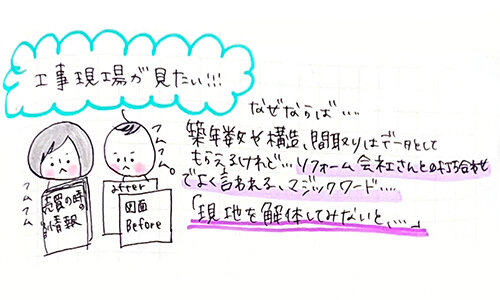 工事現場が見たい!!!
なぜならば…
築年数や構造、間取りはデータとして
もらえるけれど…リフォーム会社さんとの打ち合わせ
でよく言われる、マジックワード…
「現地を解体してみないと、…」
フムフム
フムフム。
売買の時の
情報
after
図面
Before